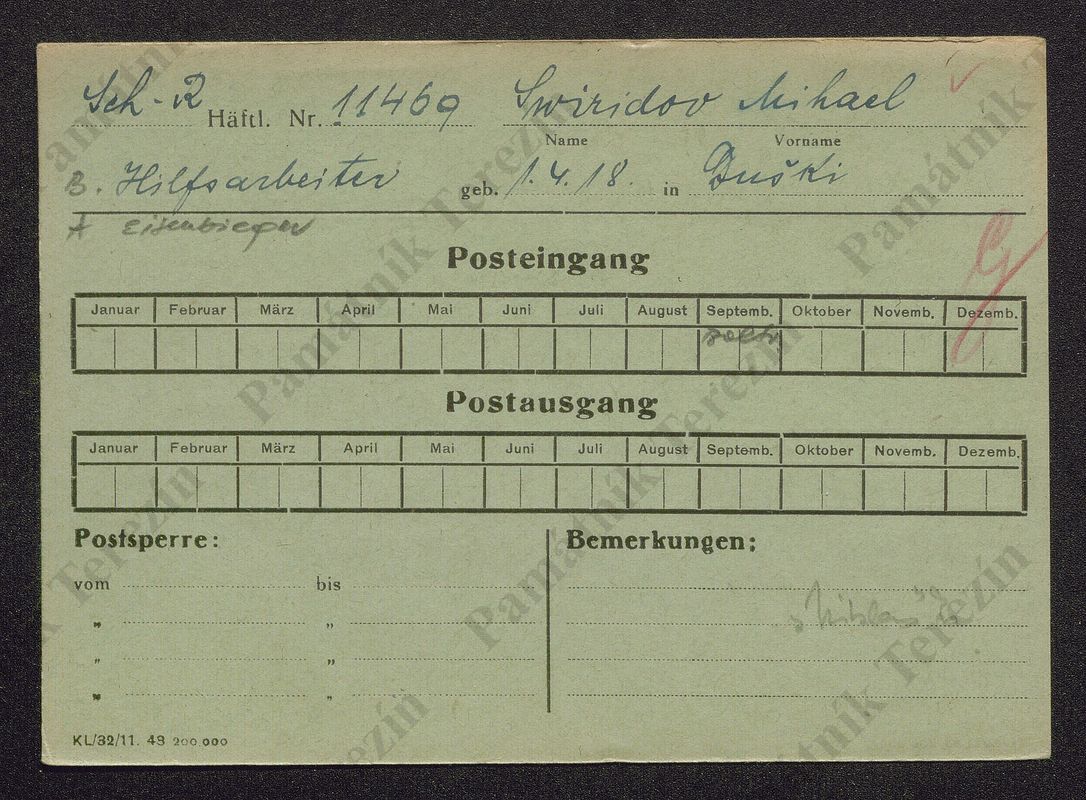 Sch-R Häftl. Nr. 11469 Swiridov Mihael
Name Vorname
B. Hilfsarbeiter geb. 1.4.18. in Duški
A Eisenbieger
Posteingang
Januar Februar März April Mai Juni Juli August Septemb. Oktober Novemb. Dezemb.
Postausgang
Januar Februar März April Mai Juni Juli August Septemb. Oktober Novemb. Dezemb.
Postsperre: Bemerkungen:
vom bis
„ „
„ „
„ „
KL/32/11. 43 200.000
Památník Terezín